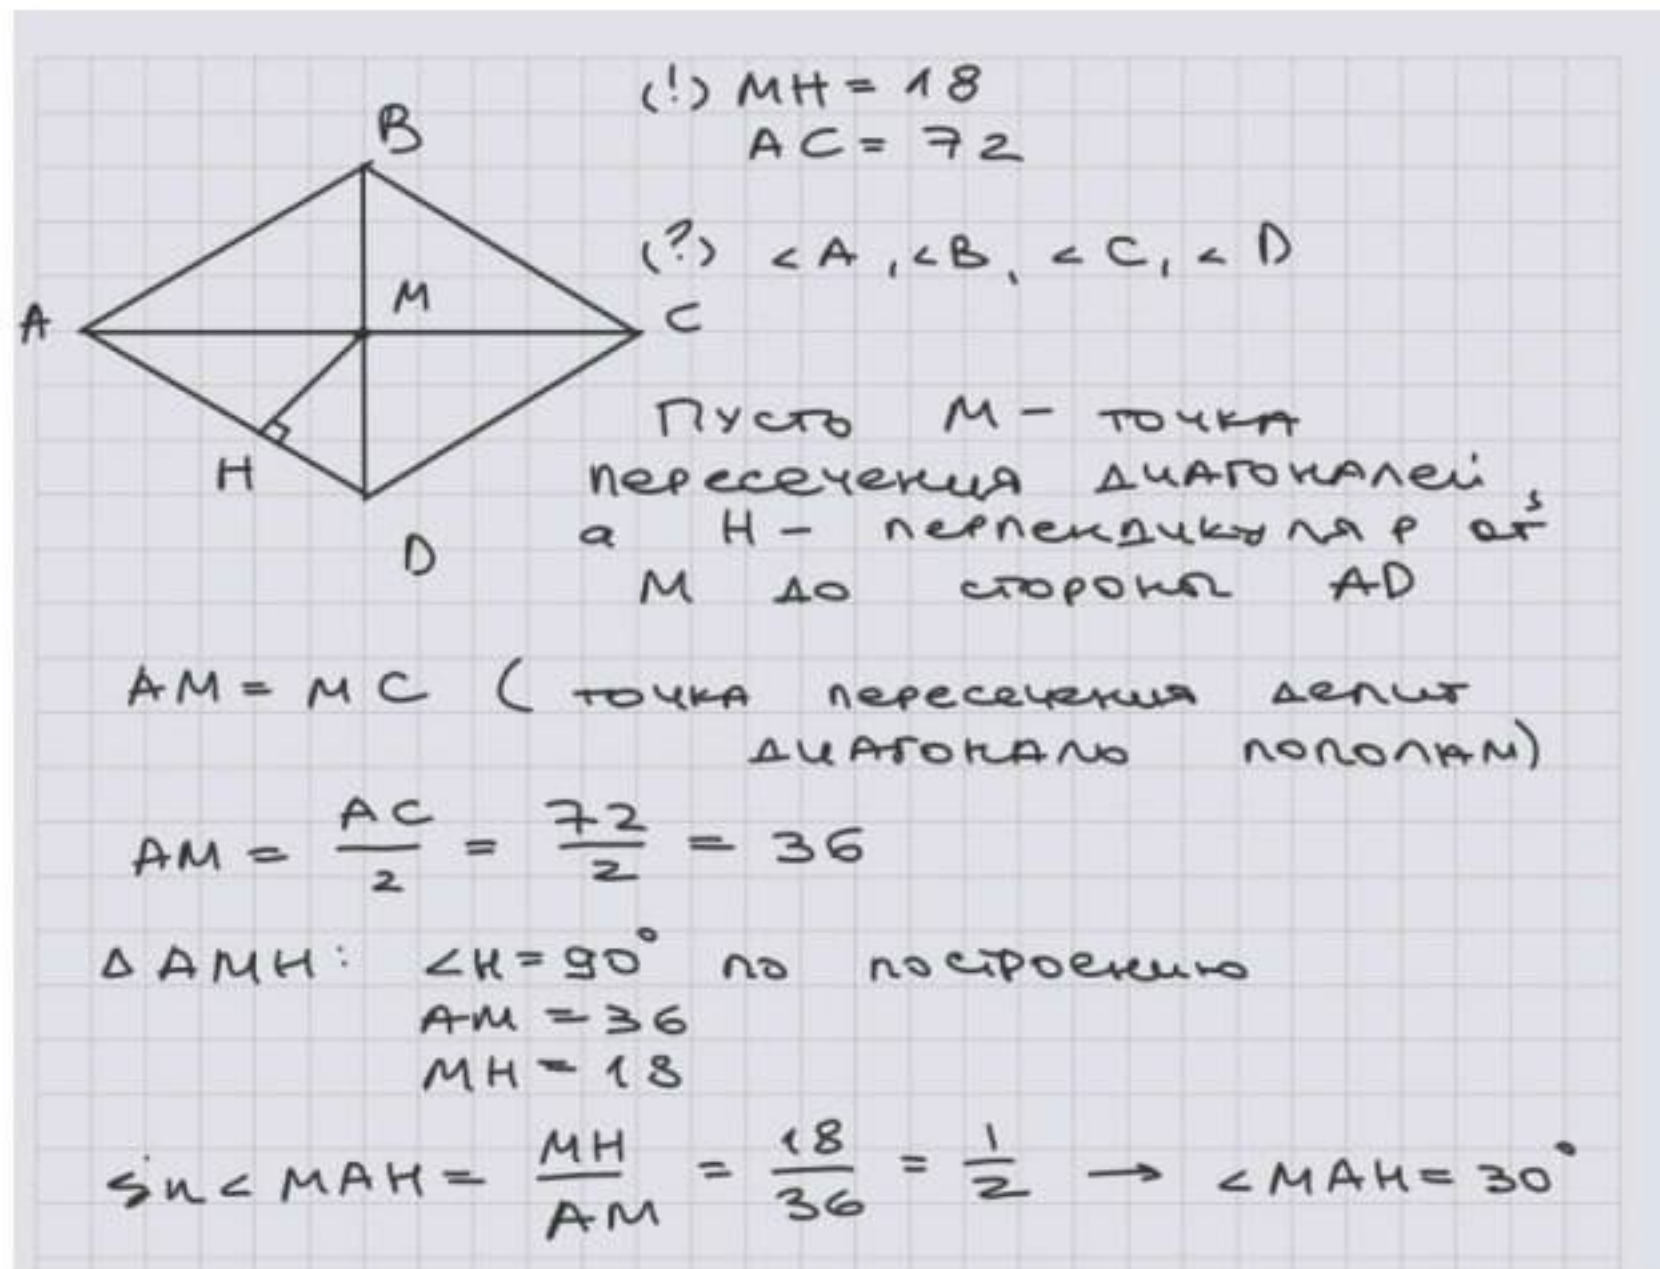 (!) MH = 18
AC = 72
B
(?) <A, <B, <C, <D
M
A
C
Пусть M - точка
H
пересечения диагоналей,
а H - перпендикуляр от
D
M до стороны AD
AM = MC (точка пересечения делит
диагональ пополам)
AM = AC/2 = 72/2 = 36
Δ AMH: <H = 90° по построению
AM = 36
MH = 18
sin < MAH = MH/AM = 18/36 = 1/2 → <MAH = 30°